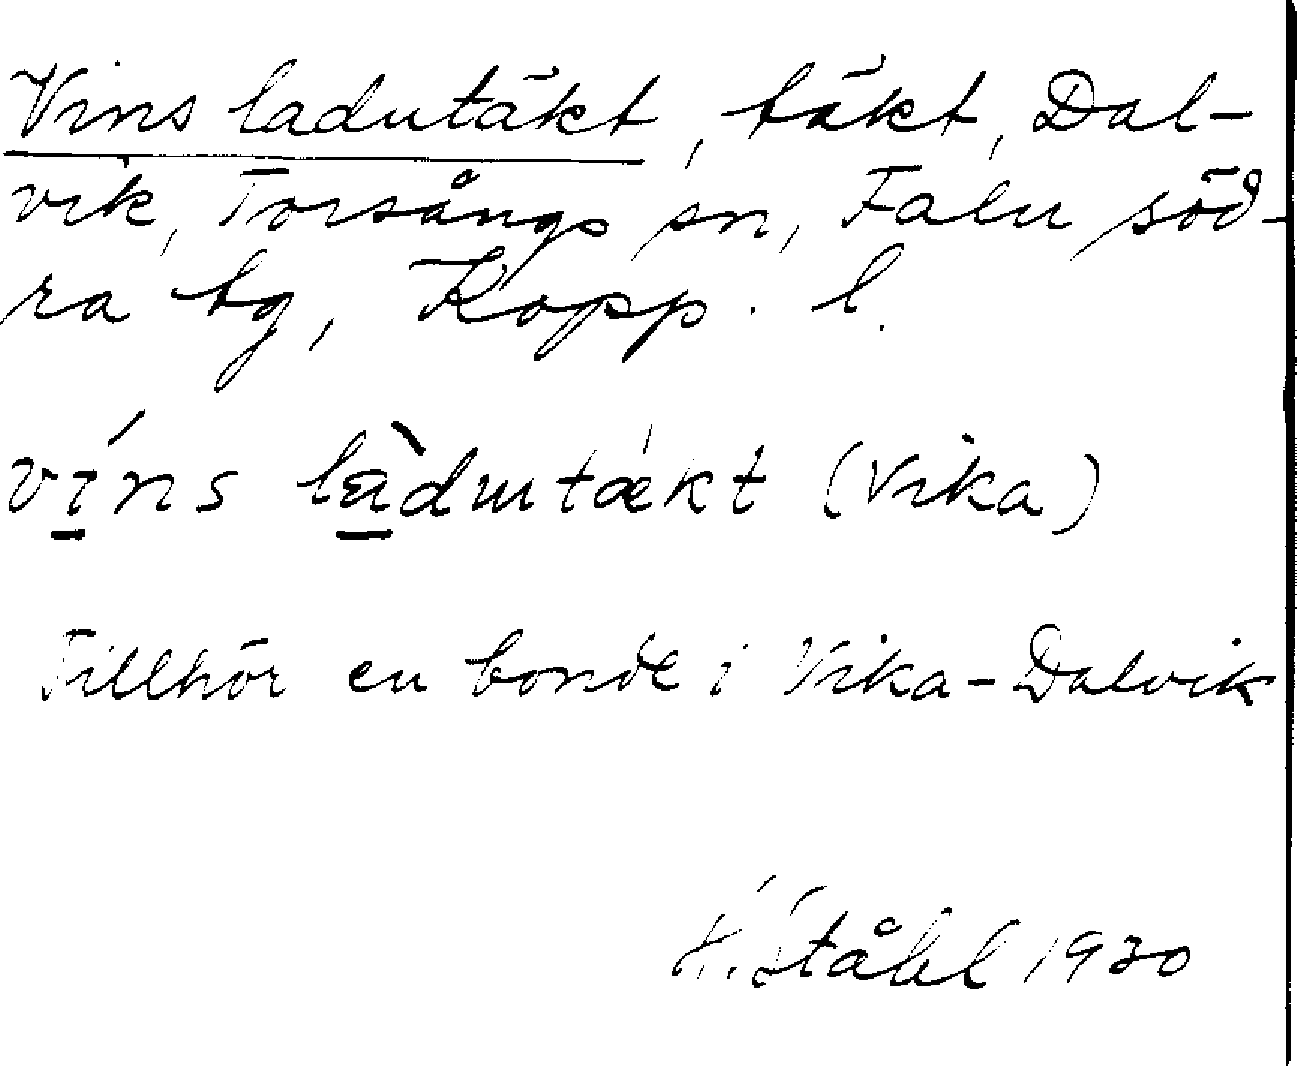 Vins ladutäkt, täkt, Dal-
vik, Torsångs sn, Falu söd-
ra tg, Kopp. l.
ví̱ns là̱dutækt (Vika)
Tillhör en bonde i Vika-Dalvik
H. Ståhl 1930